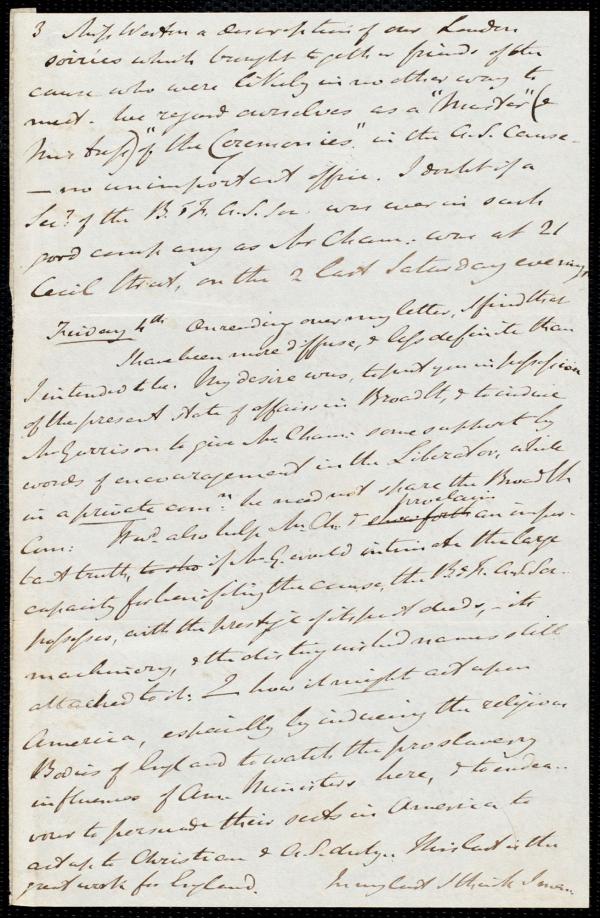 3 Miss Weston a description of our London
soirées which brought together friends of the
cause who were likely in no other way to
meet. We regard ourselves as a "Master" (&
Mistress) "of the Ceremonies" in the A.S. Cause -
- no unimportant office. I doubt if a
Secy. of the B. & F. A. S. Soc. was ever in such
good company as Mr Cham: was at 21
Cecil Street, on the 2 last Saturday evenings
Friday 4th On reading over my letter, I find that
I have been more diffuse, & less definite than
I intended to be. My desire was, to put you in possession
of the present state of affairs in Broad St, & to induce
Mr Garrison to give Mr Cham: some support by
words of encouragement in the Liberator, while
in a private comn. he need not spare the Broad St
Com: It wd. also help Mr Ch. to proclaim an impor-
tant truth, to sho if Mr G. would intimate the large
capacity for benefitting the cause, the B. & F. A. S. Soc.
possesses, with the prestige of its past deeds, - its
machinery, & the distinguished names still
attached to it; & how it might act upon
America, especially by inducing the religious
Bodies of England to watch the proslavery
influences of Am. Ministers here, & to endea-
vour to persuade their sects in America to
act up to Christian & A. S. duty. This last is the
great work for England. In my last I think I was